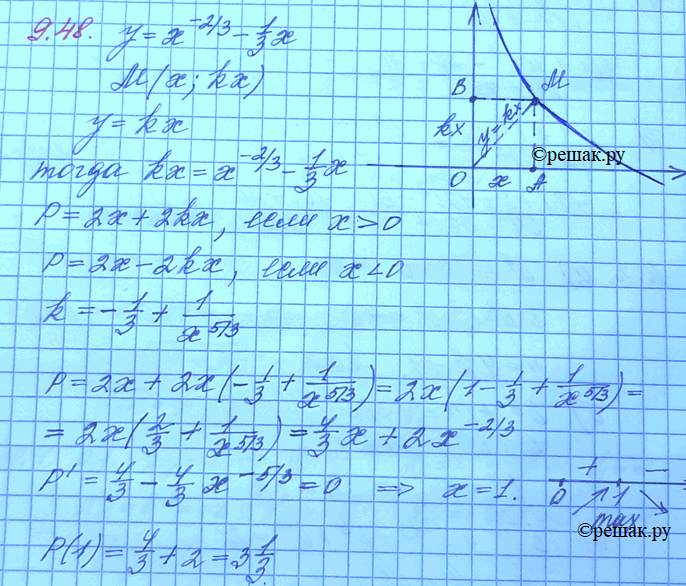 9.48. y = x^{-2/3} - \frac{1}{3}x
M(x; kx)
y = kx
тогда kx = x^{-2/3} - \frac{1}{3}x
P = 2x + 2kx, если x > 0
P = 2x - 2kx, если x < 0
k = -\frac{1}{3} + \frac{1}{x^{5/3}}
P = 2x + 2x(-\frac{1}{3} + \frac{1}{x^{5/3}}) = 2x(1 - \frac{1}{3} + \frac{1}{x^{5/3}}) =
= 2x(\frac{2}{3} + \frac{1}{x^{5/3}}) = \frac{4}{3}x + 2x^{-2/3}
P' = \frac{4}{3} - \frac{4}{3}x^{-5/3} = 0 => x = 1.
P(1) = \frac{4}{3} + 2 = 3\frac{1}{3}.
B M
kx y = kx
©решак.ру
O x A
+ -
0 1
max
©решак.ру